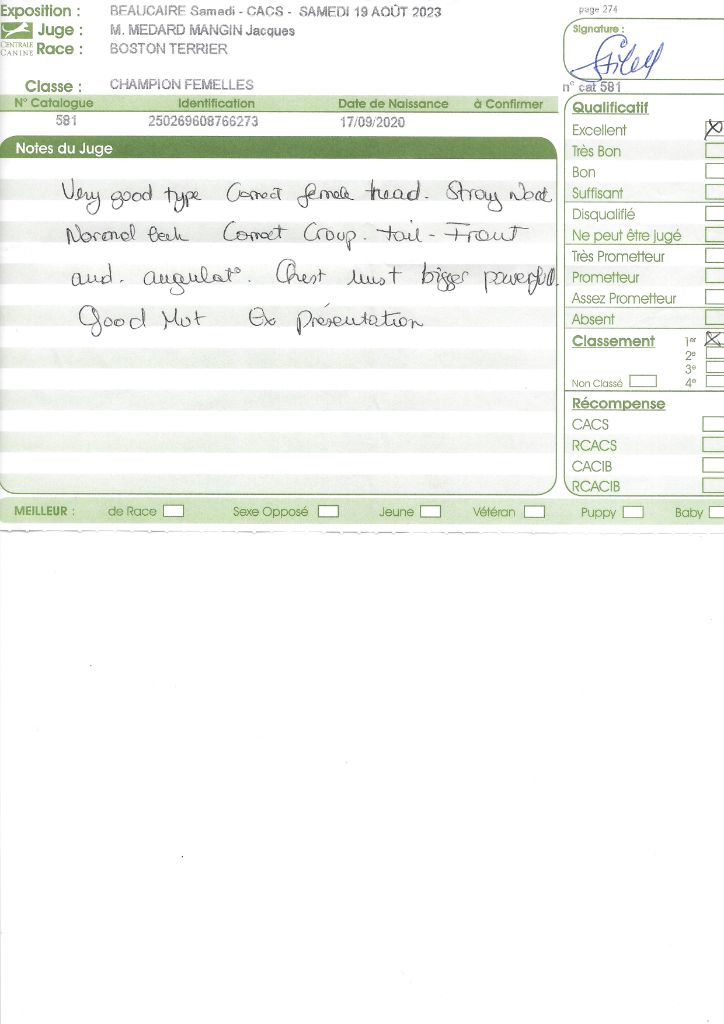 Exposition : BEAUCAIRE Samedi - CACS - SAMEDI 19 AOÛT 2023
Juge : M. MEDARD MANGIN Jacques
CENTRALE CANINE
Race : BOSTON TERRIER
Classe : CHAMPION FEMELLES
N° Catalogue Identification Date de Naissance à Confirmer
581 250269608766273 17/09/2020
Notes du Juge
Very good type Correct female head. Strong
Normal Correct Croup. tail - Front
and. angulat°. Chest must bigger powerfull.
Good Ex présentation
page 274
Signature :
n° cat 581
Qualificatif
Excellent
Très Bon
Bon
Suffisant
Disqualifié
Ne peut être jugé
Très Prometteur
Prometteur
Assez Prometteur
Absent
Classement 1er
2e
3e
Non Classé 4e
Récompense
CACS
RCACS
CACIB
RCACIB
MEILLEUR : de Race Sexe Opposé Jeune Vétéran Puppy Baby